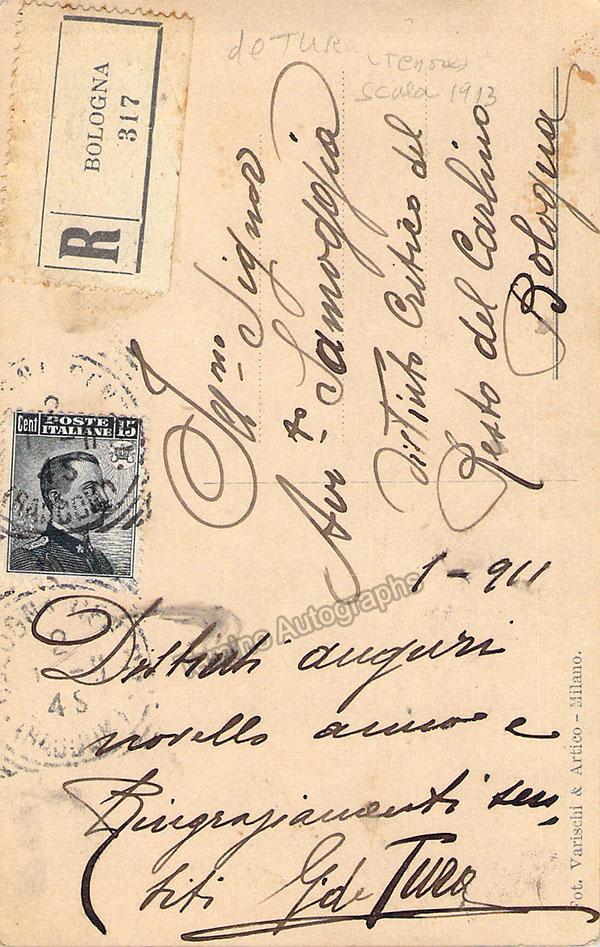 de TURA
Tenor
Scala 1913
BOLOGNA
317
R
Cent POSTE ITALIANE 15
Signor
Avv.to Samoggia
distinto critico del
Resto del Carlino
Bologna
1 - 911
Distinti auguri
novello anno e
Ringraziamenti sen-
titi G de Tura
Tamino Autographs
Fot. Varischi & Artico - Milano.